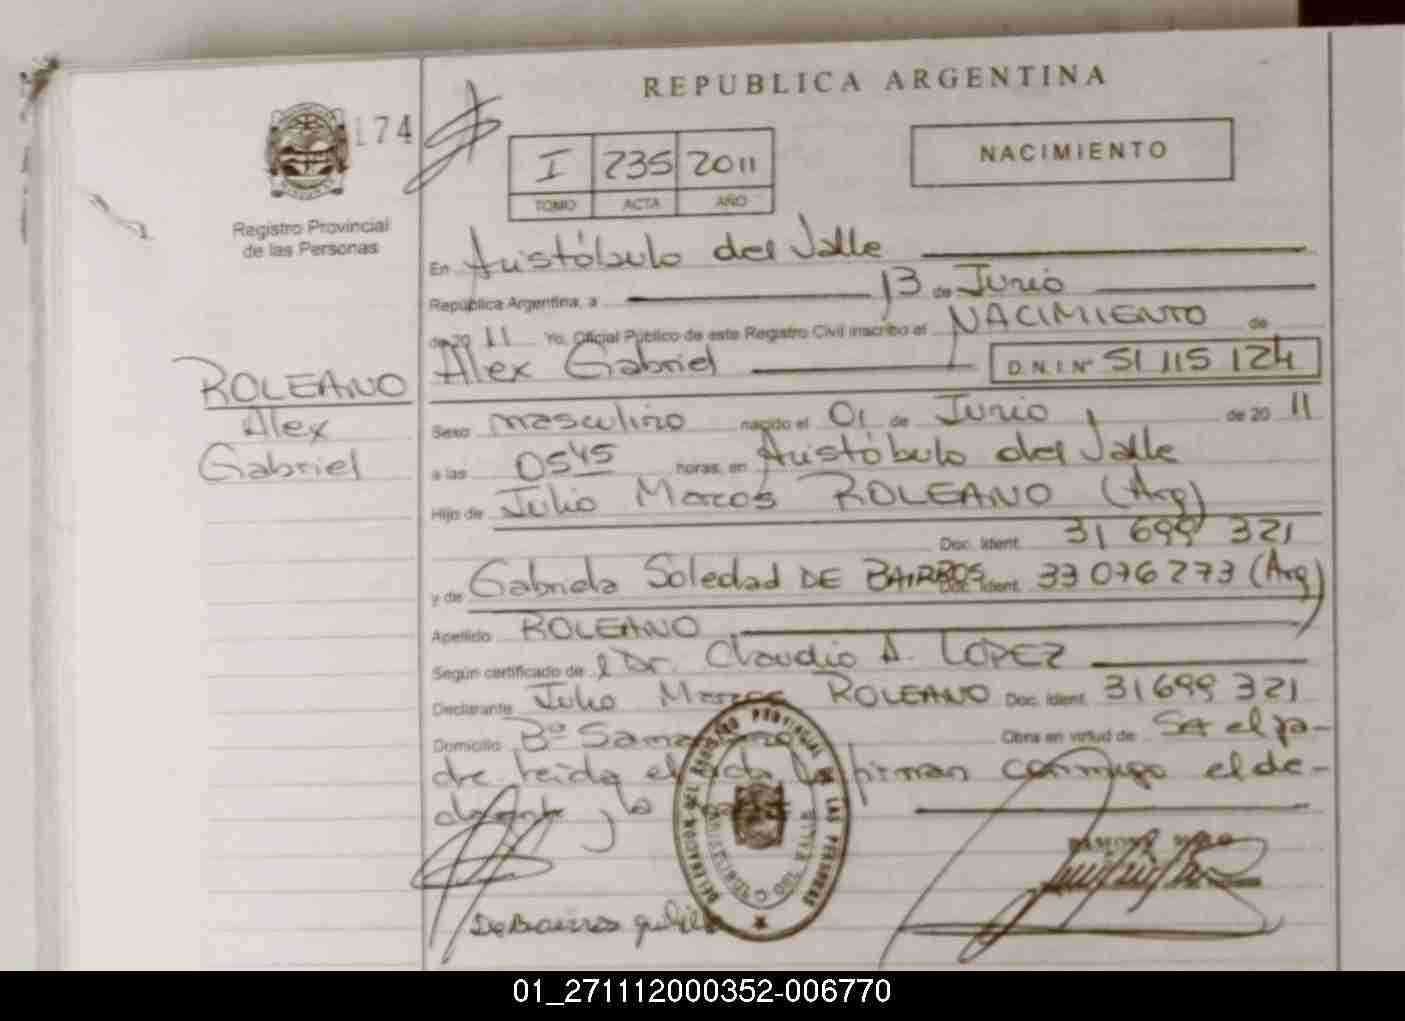 REPUBLICA ARGENTINA
174
I 235 2011
TOMO ACTA AÑO
NACIMIENTO
Registro Provincial
de las Personas
En Aristóbulo del Valle
República Argentina, a 13 de Junio
de 20 11 Yo, Oficial Público de este Registro Civil inscribo el NACIMIENTO de
Alex Gabriel D.N.I Nº 51 115 124
ROLEANO
Alex
Gabriel
Sexo masculino nacido el 01 de Junio de 20 11
a las 0545 horas, en Aristóbulo del Valle
Hijo de Julio Marcos ROLEANO (Arg)
Doc. Ident. 31 699 321
y de Gabriela Soledad DE BAIRROS Doc. Ident. 33 076 273 (Arg)
Apellido ROLEANO
Según certificado de l Dr. Claudio A. LOPEZ
Declarante Julio Marcos ROLEANO Doc. Ident. 31699 321
Domicilio Bº Obra en virtud de Ser el pa-
dre leida el acta la firman conmigo el de-
clarante y la
DELEGACION DEL REGISTRO PROVINCIAL DE LAS PERSONAS
ARISTOBULO DEL VALLE
De Bairros
01_271112000352-006770